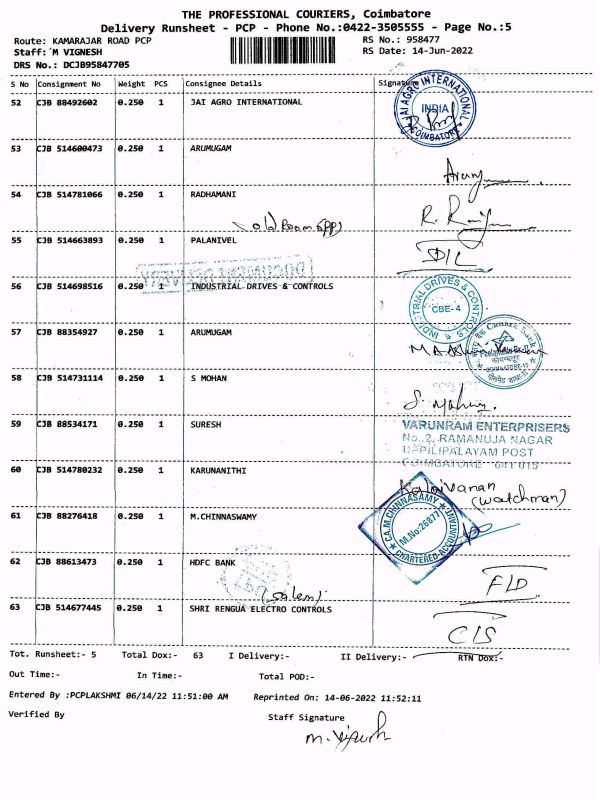 THE PROFESSIONAL COURIERS, Coimbatore
Delivery Runsheet - PCP - Phone No.:0422-3505555 - Page No.:5
Route: KAMARAJAR ROAD PCP RS No.: 958477
Staff:´M VIGNESH RS Date: 14-Jun-2022
DRS No.: DCJB95847705
S No Consignment No Weight PCS Consignee Details Signature
52 CJB 88492602 0.250 1 JAI AGRO INTERNATIONAL
JAI AGRO INTERNATIONAL INDIA COIMBATORE
53 CJB 514600473 0.250 1 ARUMUGAM
54 CJB 514781066 0.250 1 RADHAMANI
55 CJB 514663893 0.250 1 PALANIVEL
DOCUMENT DELIVERY
56 CJB 514698516 0.250 1 INDUSTRIAL DRIVES & CONTROLS
INDUSTRIAL DRIVES & CONTROLS CBE-4
57 CJB 88354927 0.250 1 ARUMUGAM
Canara Bank
58 CJB 514731114 0.250 1 S MOHAN
S. Mohan.
59 CJB 88534171 0.250 1 SURESH
VARUNRAM ENTERPRISERS
No..2, RAMANUJA NAGAR
UPPILIPALAYAM POST
COIMBATORE - 641 015
60 CJB 514780232 0.250 1 KARUNANITHI
Kalaivanan
(watchman)
61 CJB 88276418 0.250 1 M.CHINNASWAMY
CA.M.CHINNASAMY M.No:26877 CHARTERED ACCOUNTANT
62 CJB 88613473 0.250 1 HDFC BANK
FLD
(Salem)
63 CJB 514677445 0.250 1 SHRI RENGUA ELECTRO CONTROLS
CLS
Tot. Runsheet:- 5 Total Dox:- 63 I Delivery:- II Delivery:- RTN Dox:-
Out Time:- In Time:- Total POD:-
Entered By :PCPLAKSHMI 06/14/22 11:51:00 AM Reprinted On: 14-06-2022 11:52:11
Verified By Staff Signature
M. Vignesh